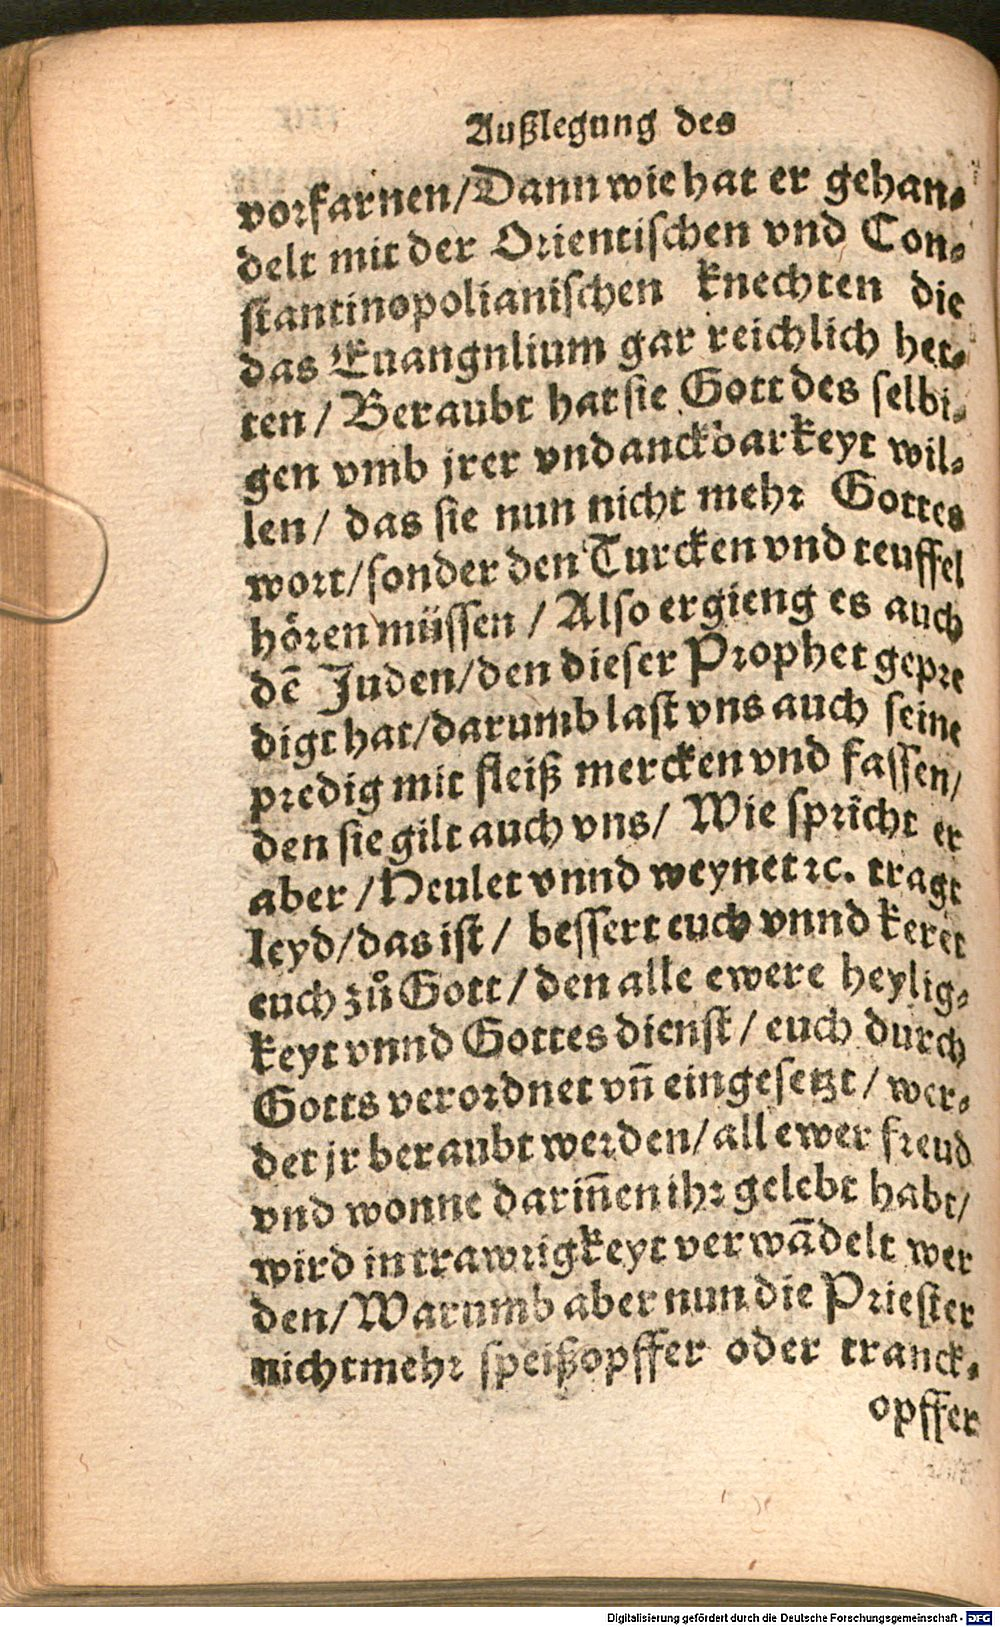 Außlegung des
vorfarnen/Dann wie hat er gehan-
delt mit der Orientischen vnd Con-
stantinopolianischen knechten die
das Euangnlium gar reichlich het-
ten / Beraubt hat sie Gott des selbi-
gen vmb jrer vndanckbarkeyt wil-
len / das sie nun nicht mehr Gottes
wort/sonder den Turcken vnd teuffel
hören müssen / Also ergieng es auch
dē Juden/den dieser Prophet gepre
digt hat/darumb last vns auch seine
predig mit fleiß mercken vnd fassen/
den sie gilt auch vns/ Wie spricht er
aber /Heulet vnnd weynet ꝛc. tragt
leyd/das ist / bessert euch vnnd keret
euch zů Gott / den alle ewere heylig-
keyt vnnd Gottes dienst / euch durch
Gotts verordnet vn̄ eingesetzt / wer-
det jr beraubt werden/all ewer freud
vnd wonne darin̄en ihr gelebt habt/
wird in trawrigkeyt verwādelt wer
den/Warumb aber nun die Priester
nicht mehr speißopffer oder tranck-
opffer
Digitalisierung gefördert durch die Deutsche Forschungsgemeinschaft - DFG